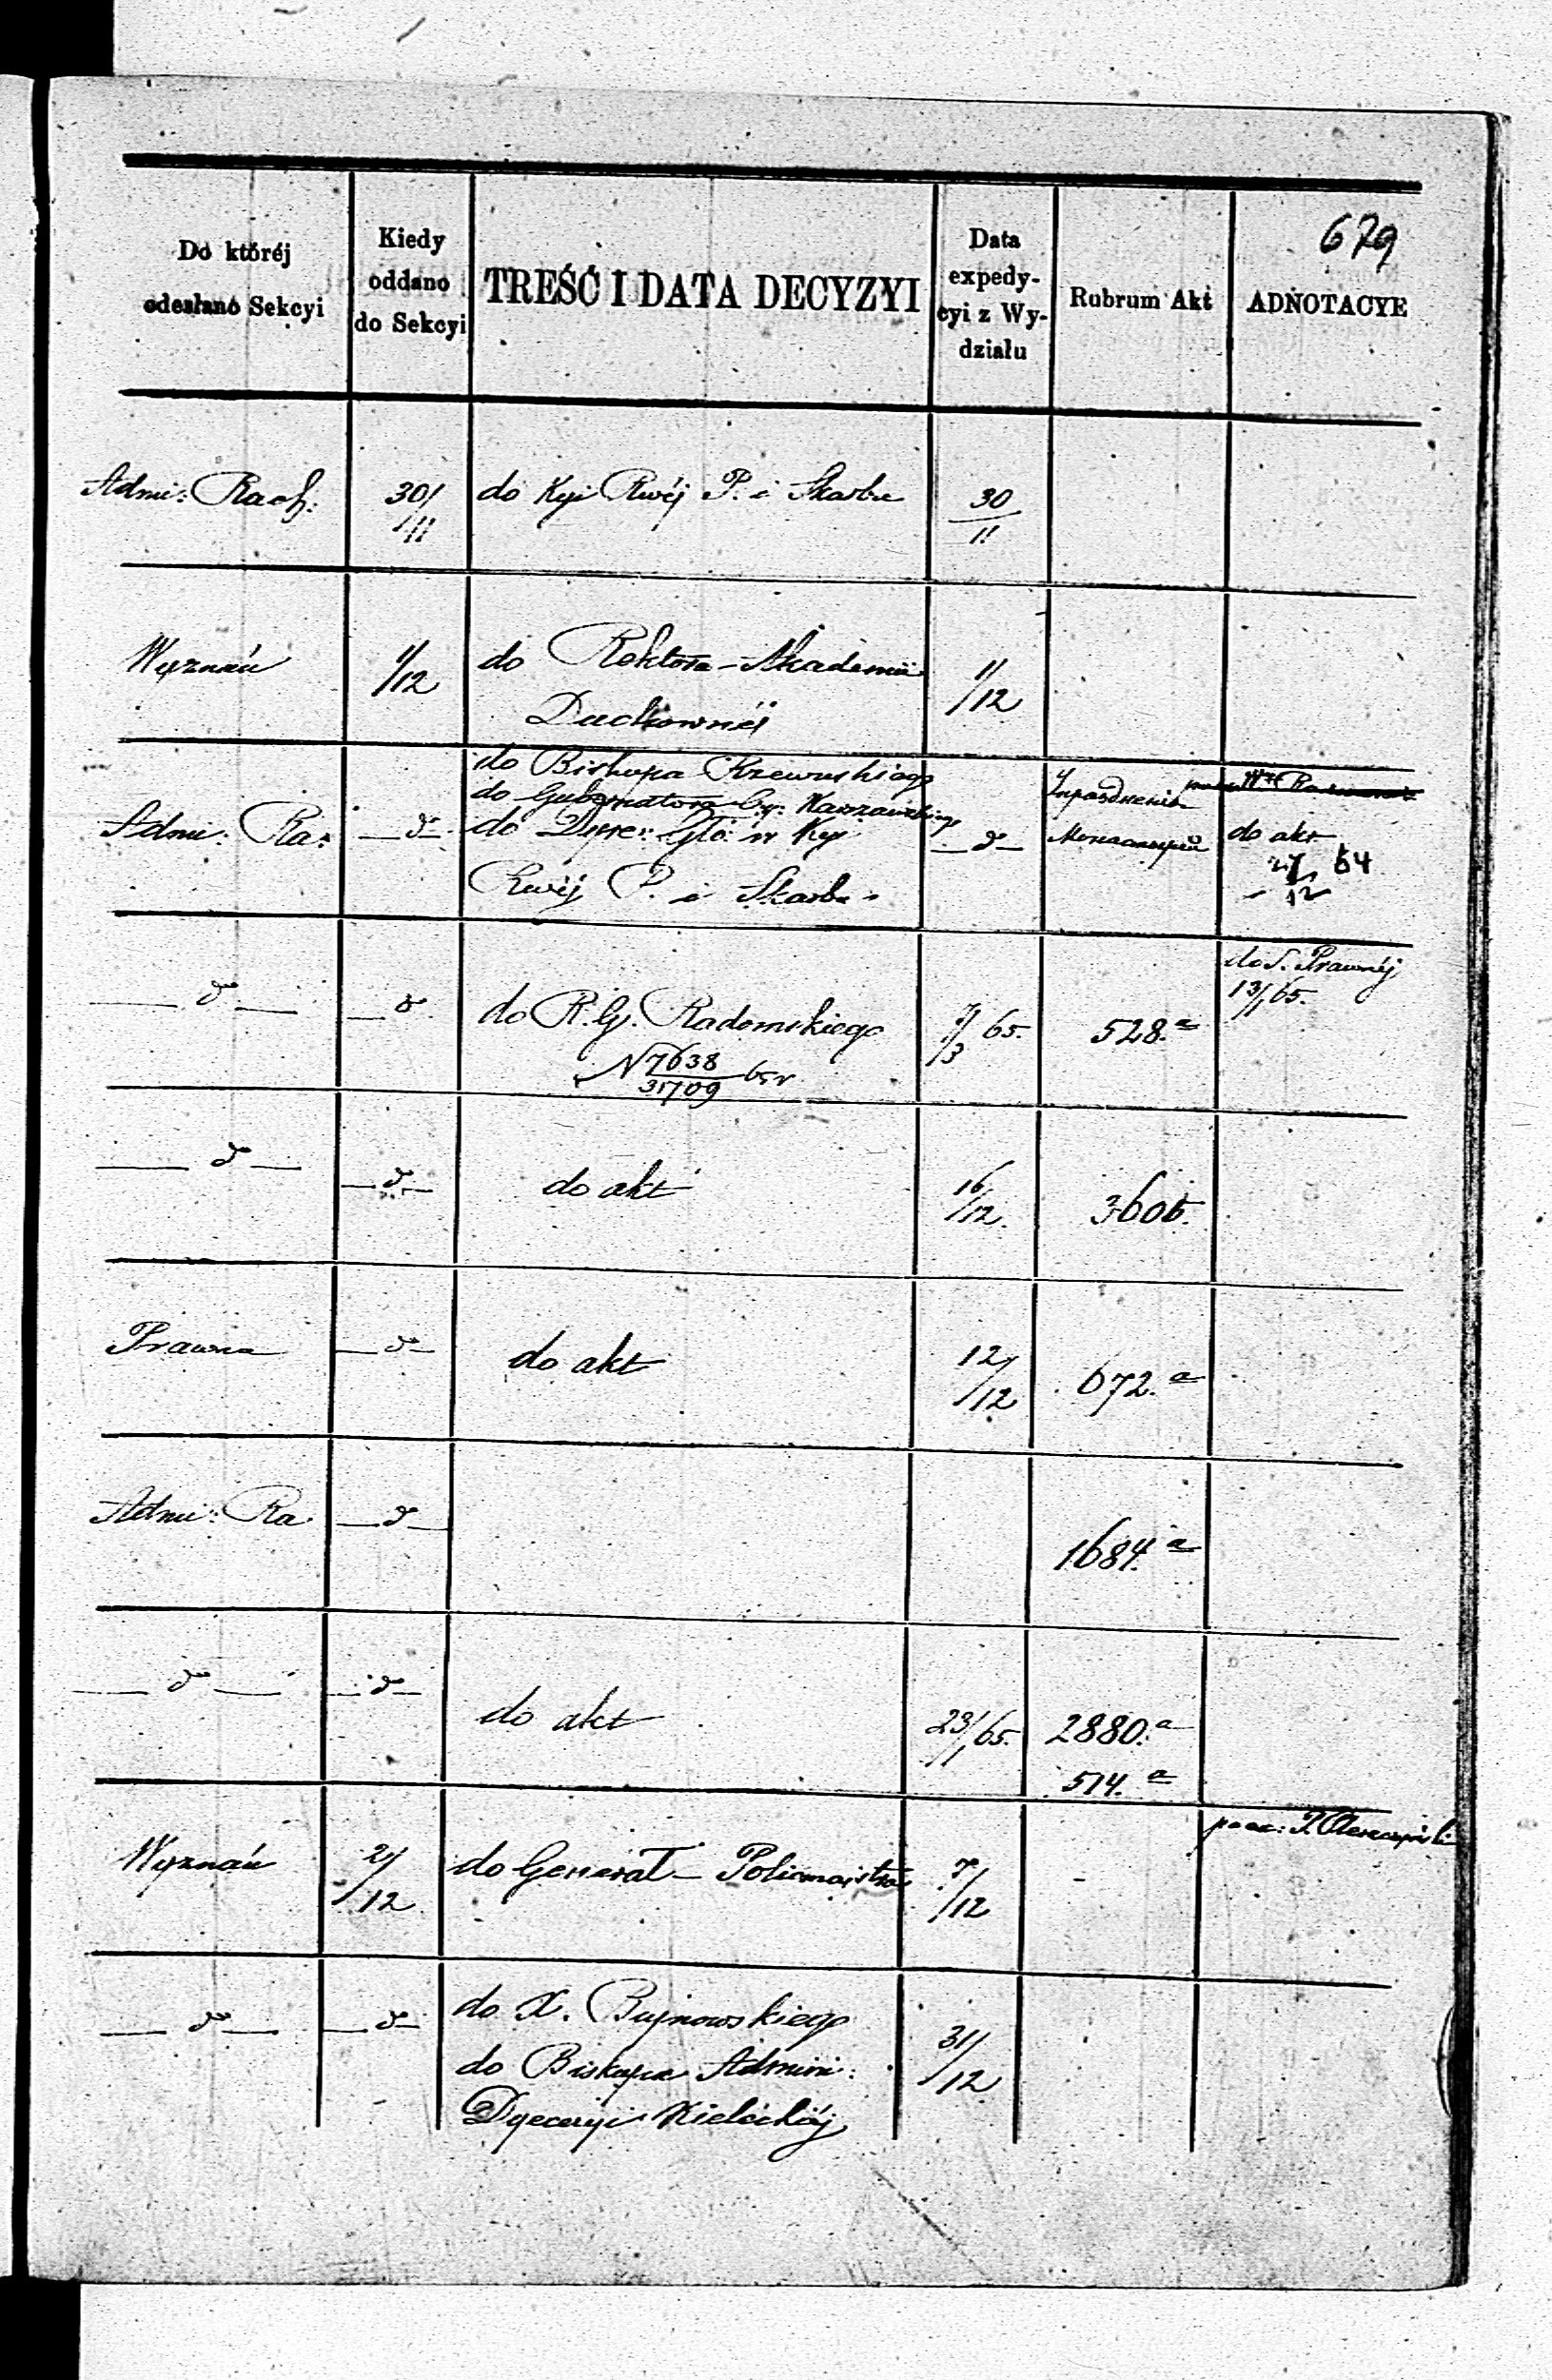 679
Do któréj odesłano Sekcyi | Kiedy oddano do Sekcyi | TREŚĆ I DATA DECYZYI | Data expedycyi z Wydziału | Rubrum Akt | ADNOTACYE
Admi: Rach: | 30/11 | do Kyi Rwéj P. i Skarbu | 30/11
Wyznań | 1/12 | do Rektora Akademii | 1/12
Duchownéj
do Biskupa Rzewuskiego
do Gubernatora Cy: Warszawskiego
Admi: Ra: | — d° — | do Dyre: Głó: w Kyi | — d° — | Упраздненія Монастырей | do akt 27/12 64
Rwéj P. i Skarbu
do S. Prawnéj
13/1 65.
— d° — | — d° | do R. G. Radomskiego | 7/3 65. | 528.a
N 7638/31709 65 r
— d° — | — d° — | do akt | 16/12. | 3606.
Prawna | — d° — | do akt | 12/12 | 672.a
Admi: Ra | — d° — | 1684.a
— d° — | — d° — | do akt | 23/1 65. | 2880.a
514.a
Wyznań | 2/12 | do Generał-Policmajstra | 7/12
— d° — | — d° — | do X. Bujnowskiego | 31/12
do Biskupa Admini:
Dyecezyi Kieleckiéj